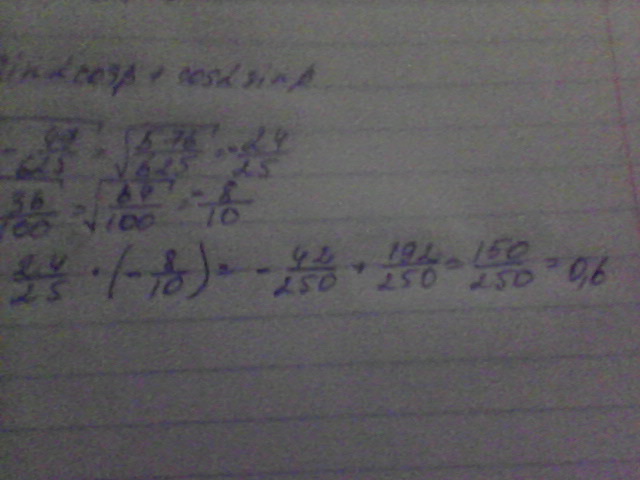 sinαcosβ + cosα sinβ
- 49/625 = √576/625 = -24/25
36/100 = √64/100 = -8/10
24/25 · (-8/10) = -42/250 + 192/250 = 150/250 = 0,6